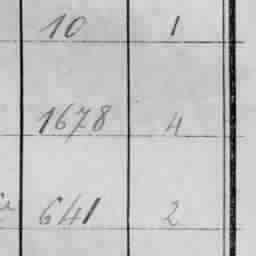 10 1
1678 4
641 2